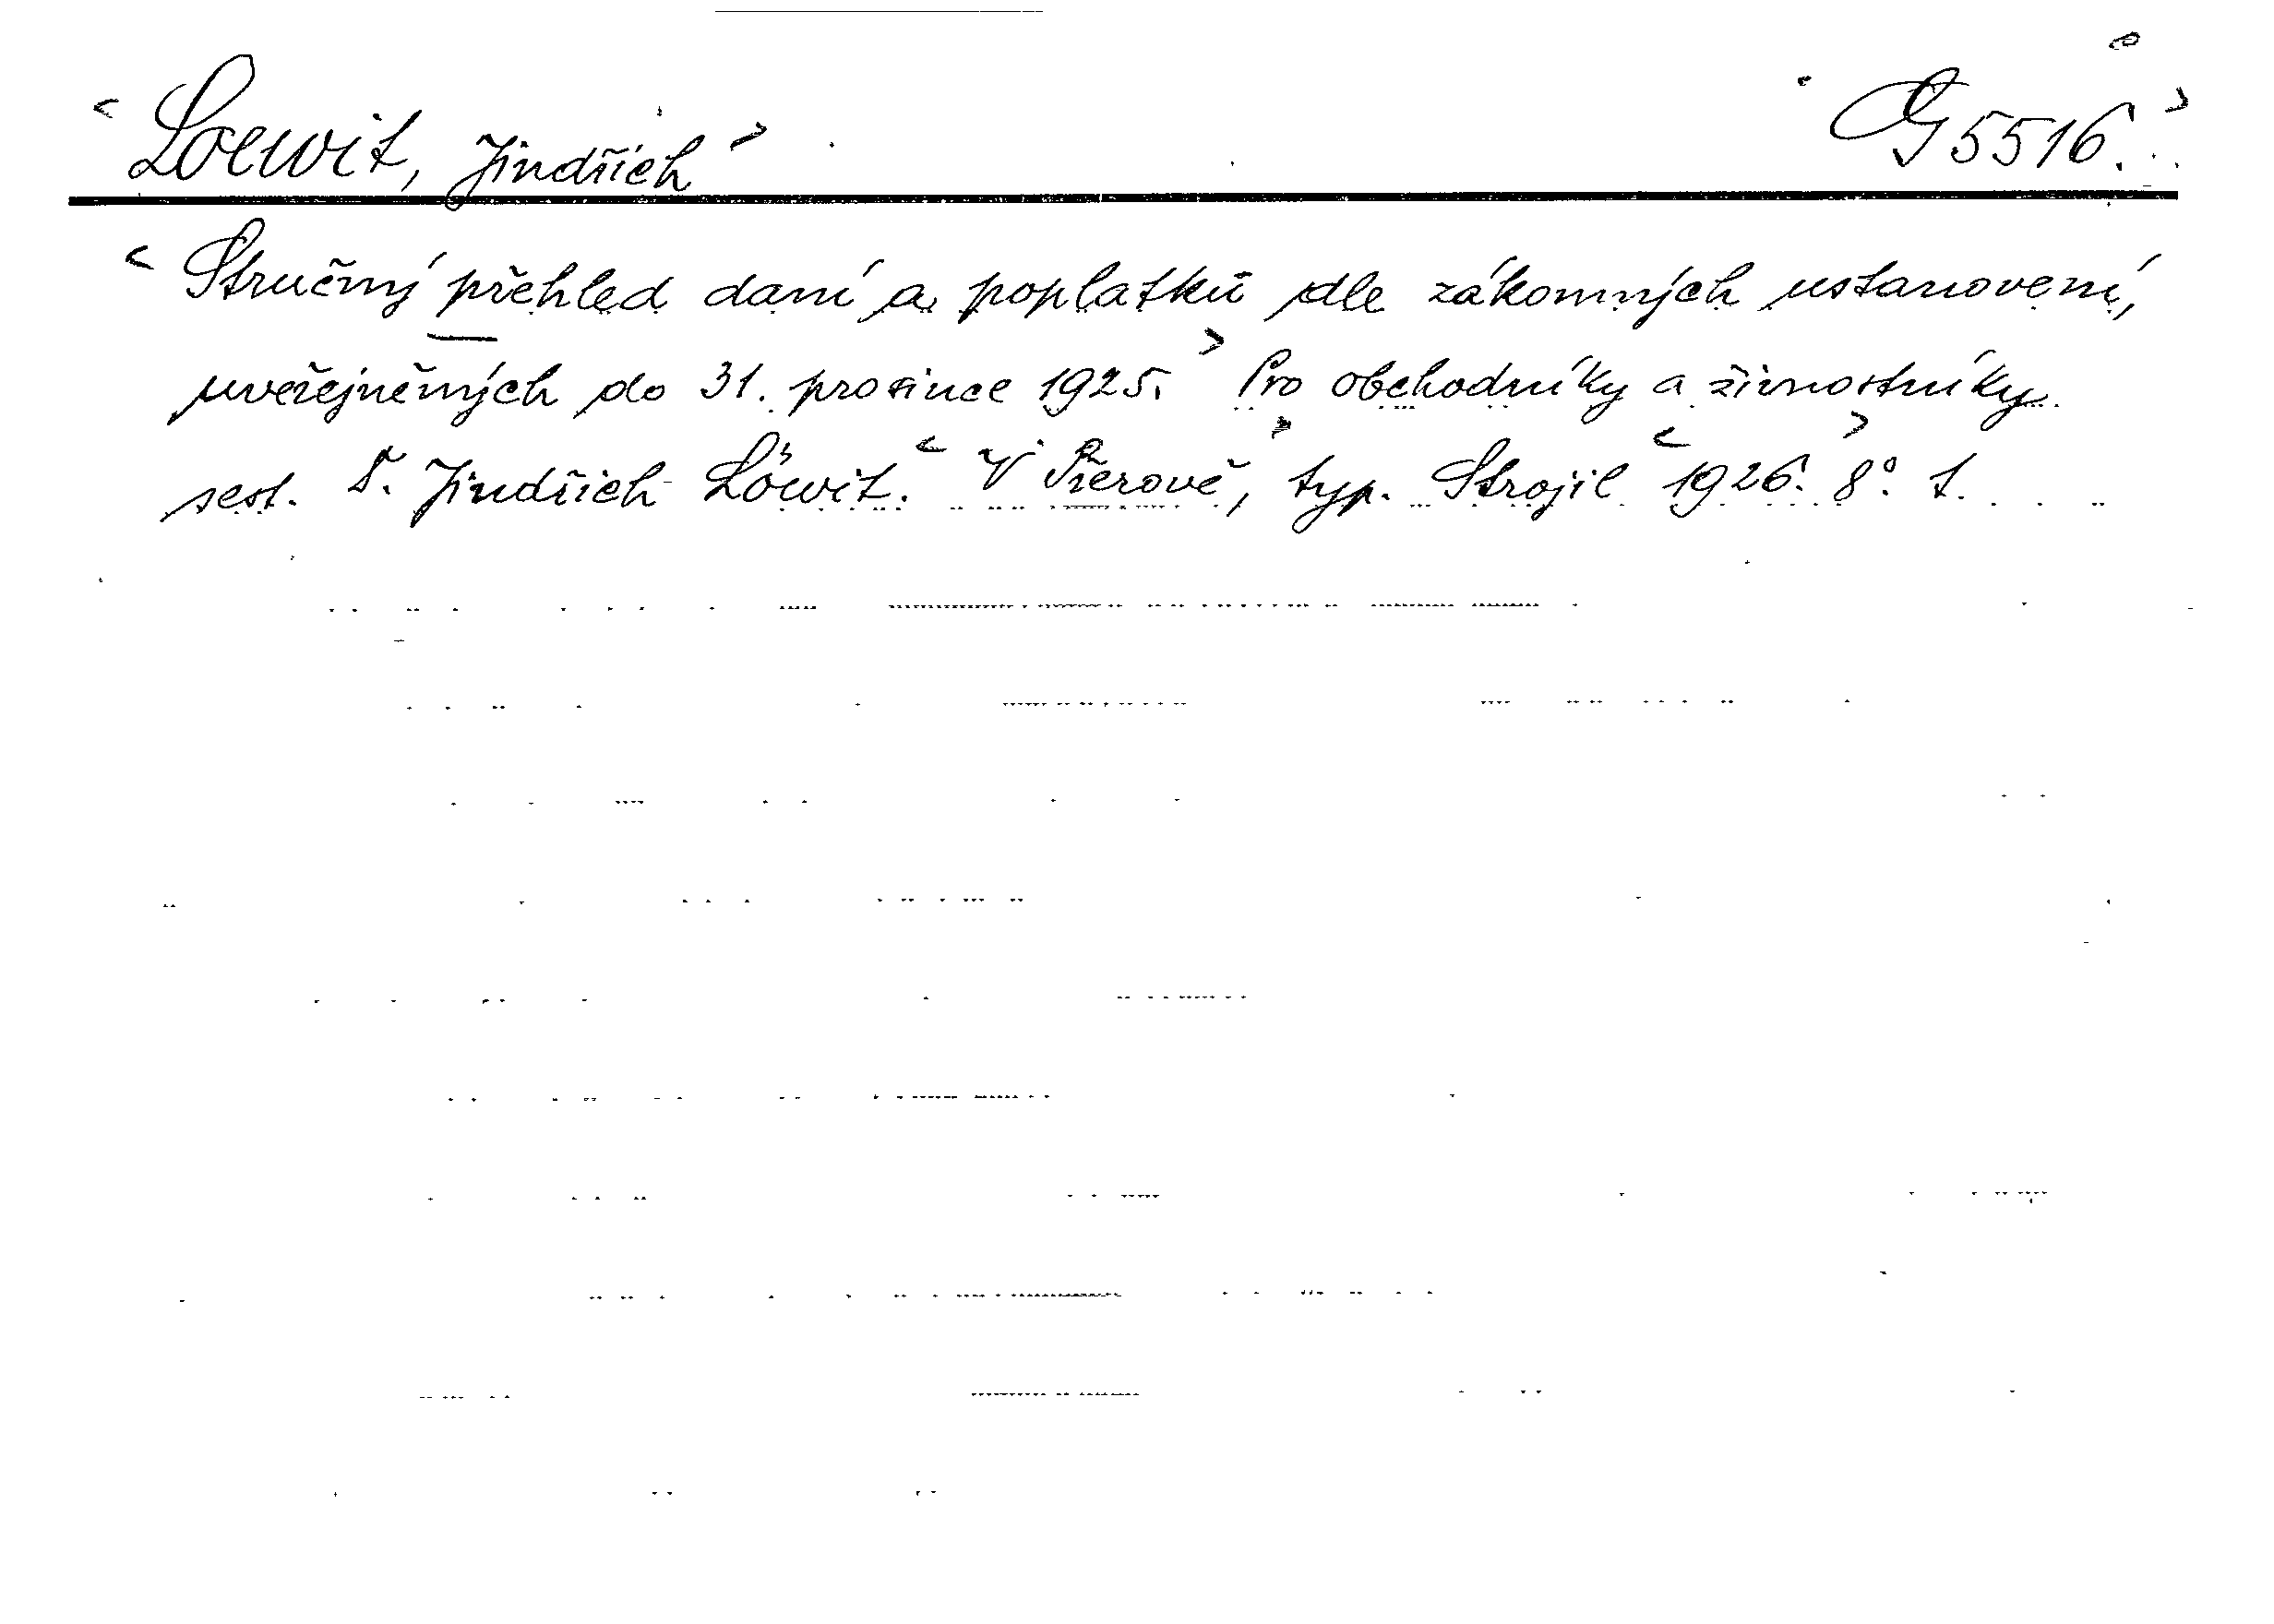 < Loewit, Jindřich > < G 5516. >
< Stručný přehled daní a poplatků dle zákonných ustanovení,
uveřejněných do 31. prosince 1925. > Pro obchodníky a živnostníky
sest. Jindřich Löwit. < V Přerově, > typ. Strojil < 1926. > 8°.